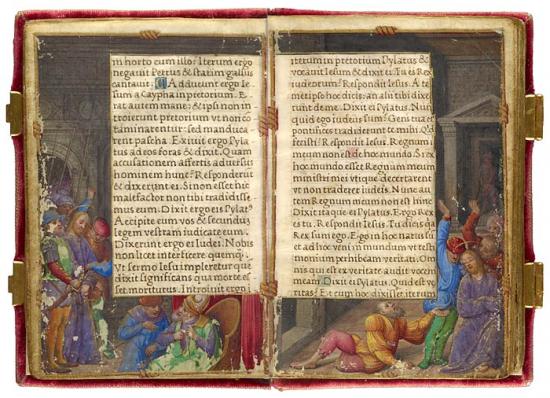 in horto cum illo? Iterum ergo
negavit Petrus & statim gallus
cantavit. Adducunt ergo Ie-
sum a Caypha in pretorium. E-
rat autem mane: & ipsi non in
troierunt pretorium vt non co
taminarentur: sed manduca
rent pascha. Exivit ergo Pyla
tus ad eos foras & dixit. Quam
accusationem affertis adversus
hominem hunc? Responderut
& dixerunt ei. Si non esset hic
malefactor non tibi tradidisse
mus eum. Dixit ergo eis Pylat9
Accipite eum vos & secundus
legem vestram iudicate eum.
Dixerunt ergo ei Iudei. Nobis
non licet interficere quemq3
Vt sermo Iesu impleretur que
dixit significans qua morte es
set moriturus. Introivit ergo i
iterum in pretorium Pylatus &
vocavit Iesum & dixit ei. Tu es Rex
iudeorum? Respondit Iesus. A te
metipso hoc dicis: an alii tibi dixe
runt de me. Dixit ei Pylatus. Nun
quid ego iudeus sum? Gens tua et
pontifices tradiderunt te mihi. Qd
fecisti? Respondit Iesus. Regnum
meum non est de hoc mundo. Si ex
hoc mundo esset Regnum meum
ministri mei vtique decertarent
vt non traderer iudeis. Nunc au
tem Regnum meum non est hinc
Dixit itaque ei Pylatus. Ergo Rex
es tu. Respondit Iesus. Tu dicis qa
Rex sum ego. Ego in hoc natus su
et ad hoc veni in mundum vt testi
monium perhibeam veritati. Om
nis qui est ex veritate audit vocem
meam. Dixit ei Pylatus. Quid est ve
ritas? Et cum hoc dixisset iterum